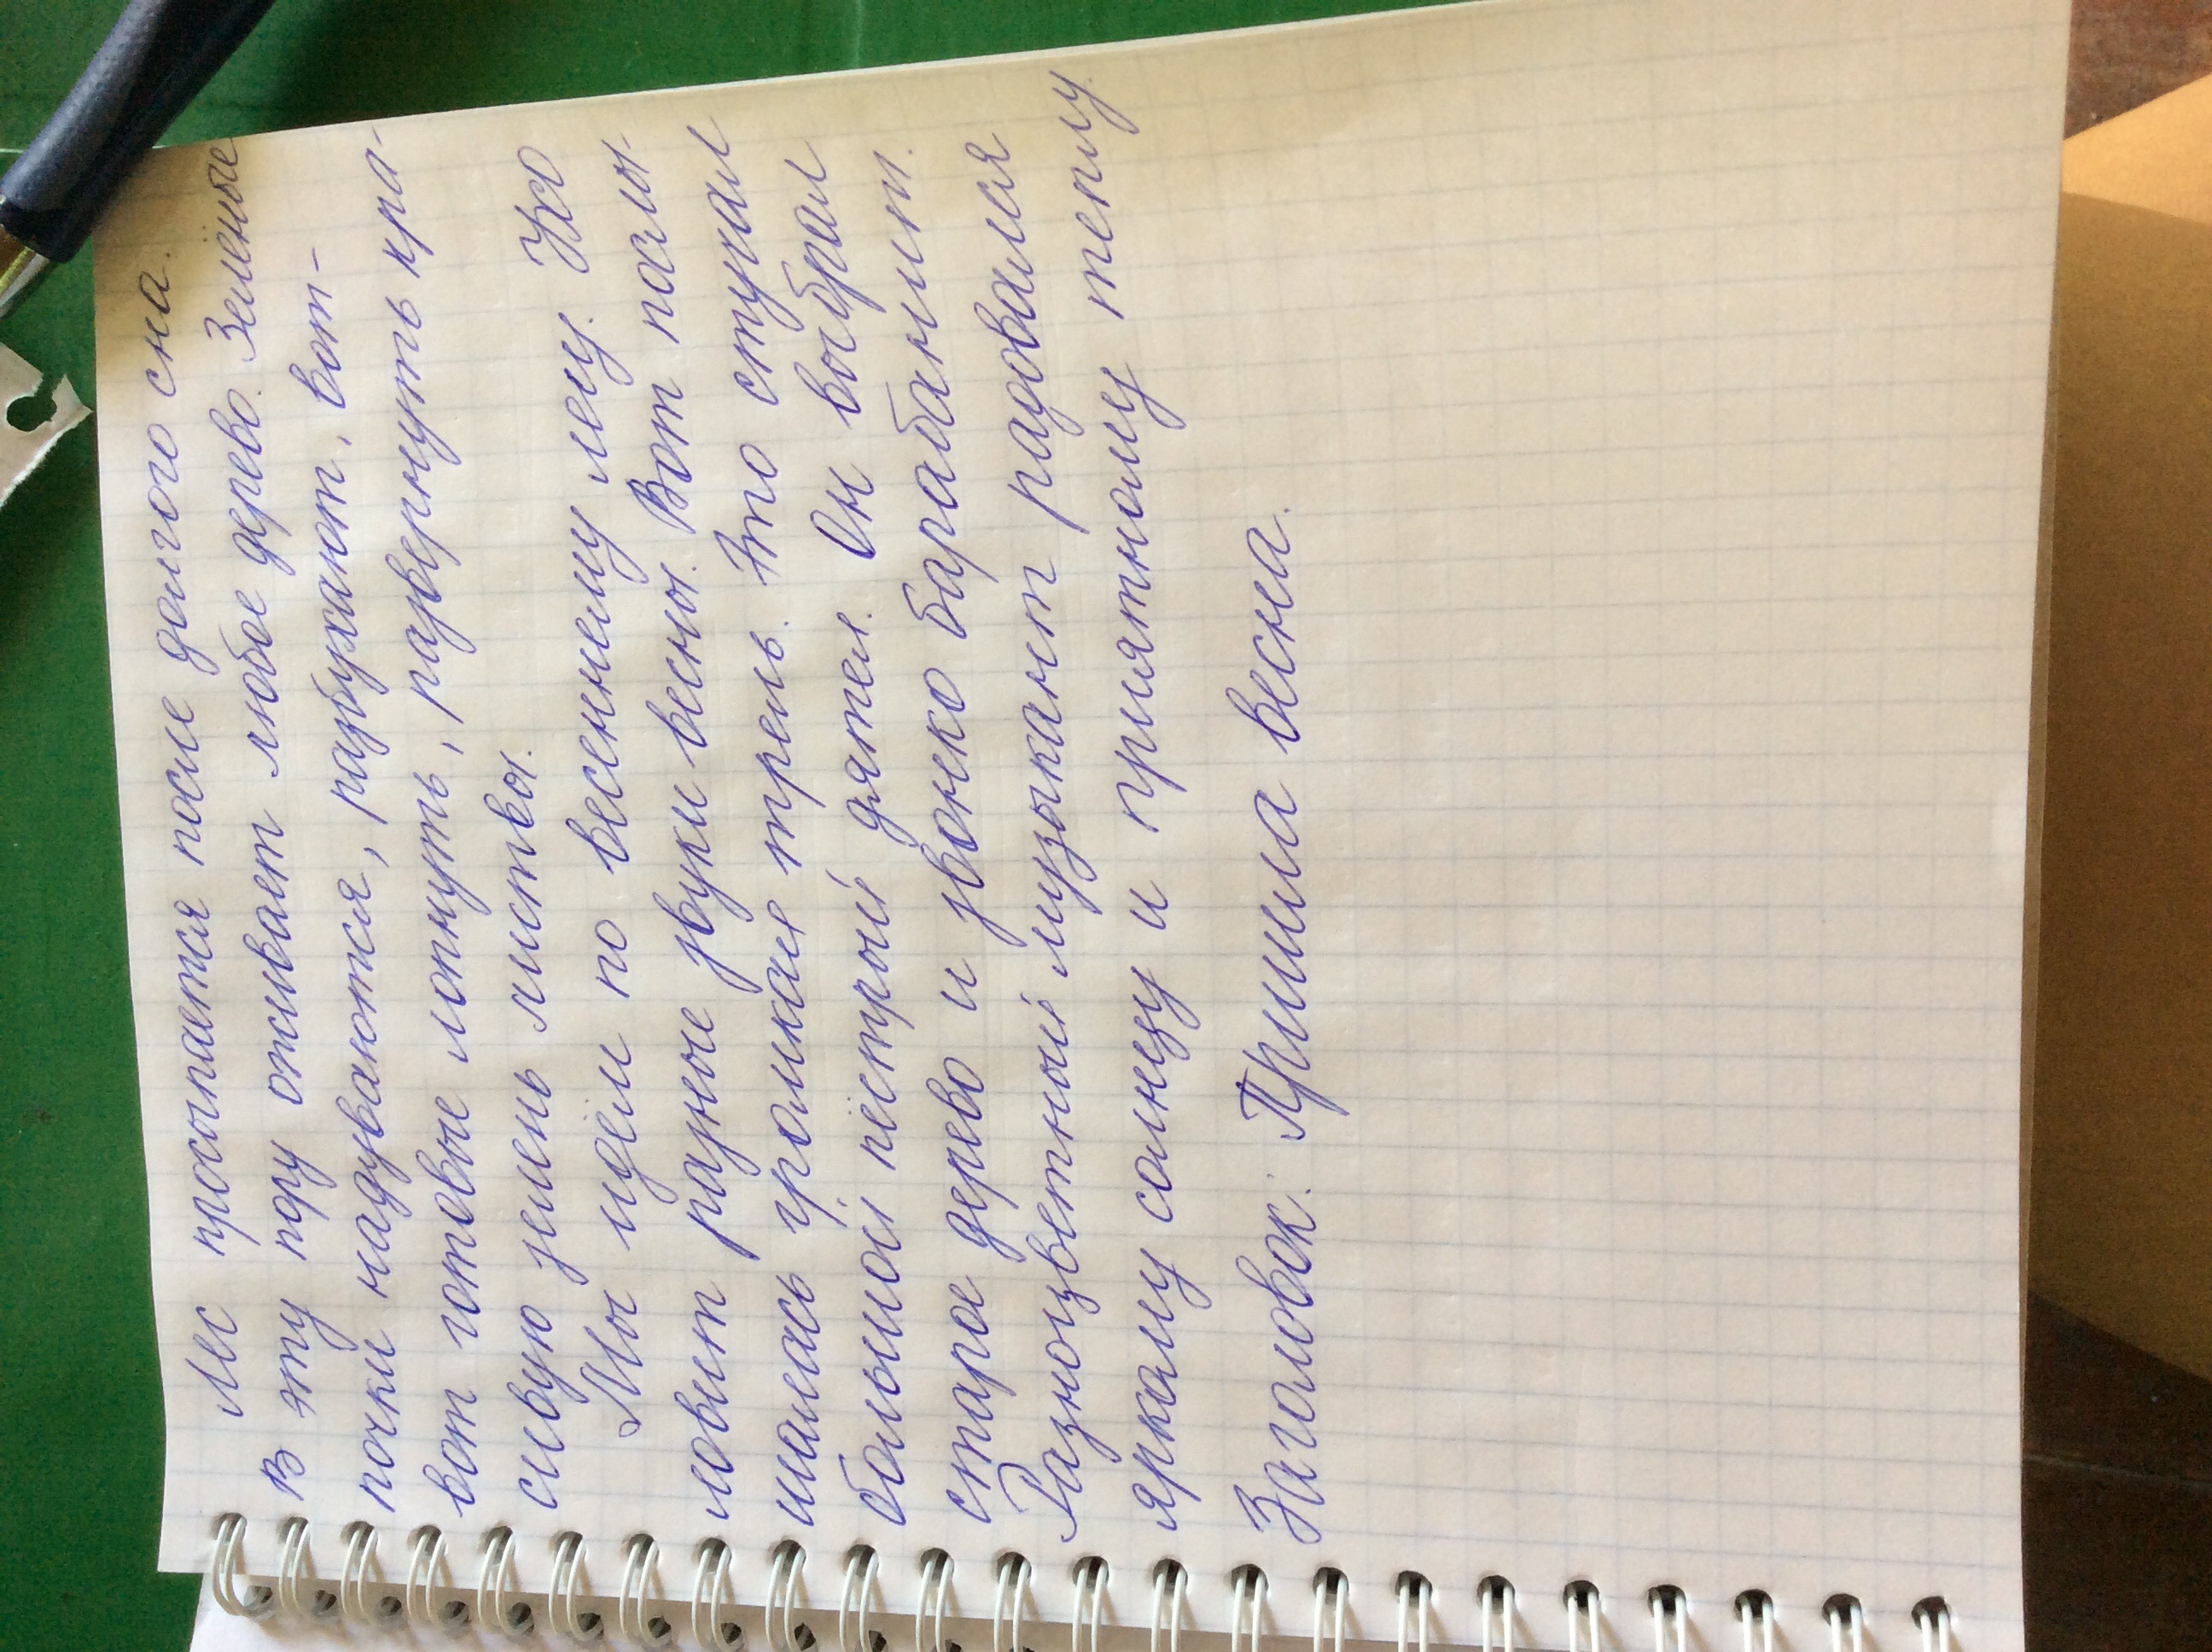 Лес просыпается после долгого сна.
В эту пору оживает любое дерево. Зелёные
почки надуваются, разбухают, вот-
вот готовые лопнуть, развернуть кра-
сивую зелень листвы.
Мы идём по весеннему лесу. Ухо
ловит разные звуки весны. Вот послы-
шалась громкая трель. Это стучал
большой пёстрый дятел. Он выбрал
старое дерево и звонко барабанит.
Разноцветный музыкант радовался
яркому солнцу и приятному теплу.
Заголовок: Пришла весна.